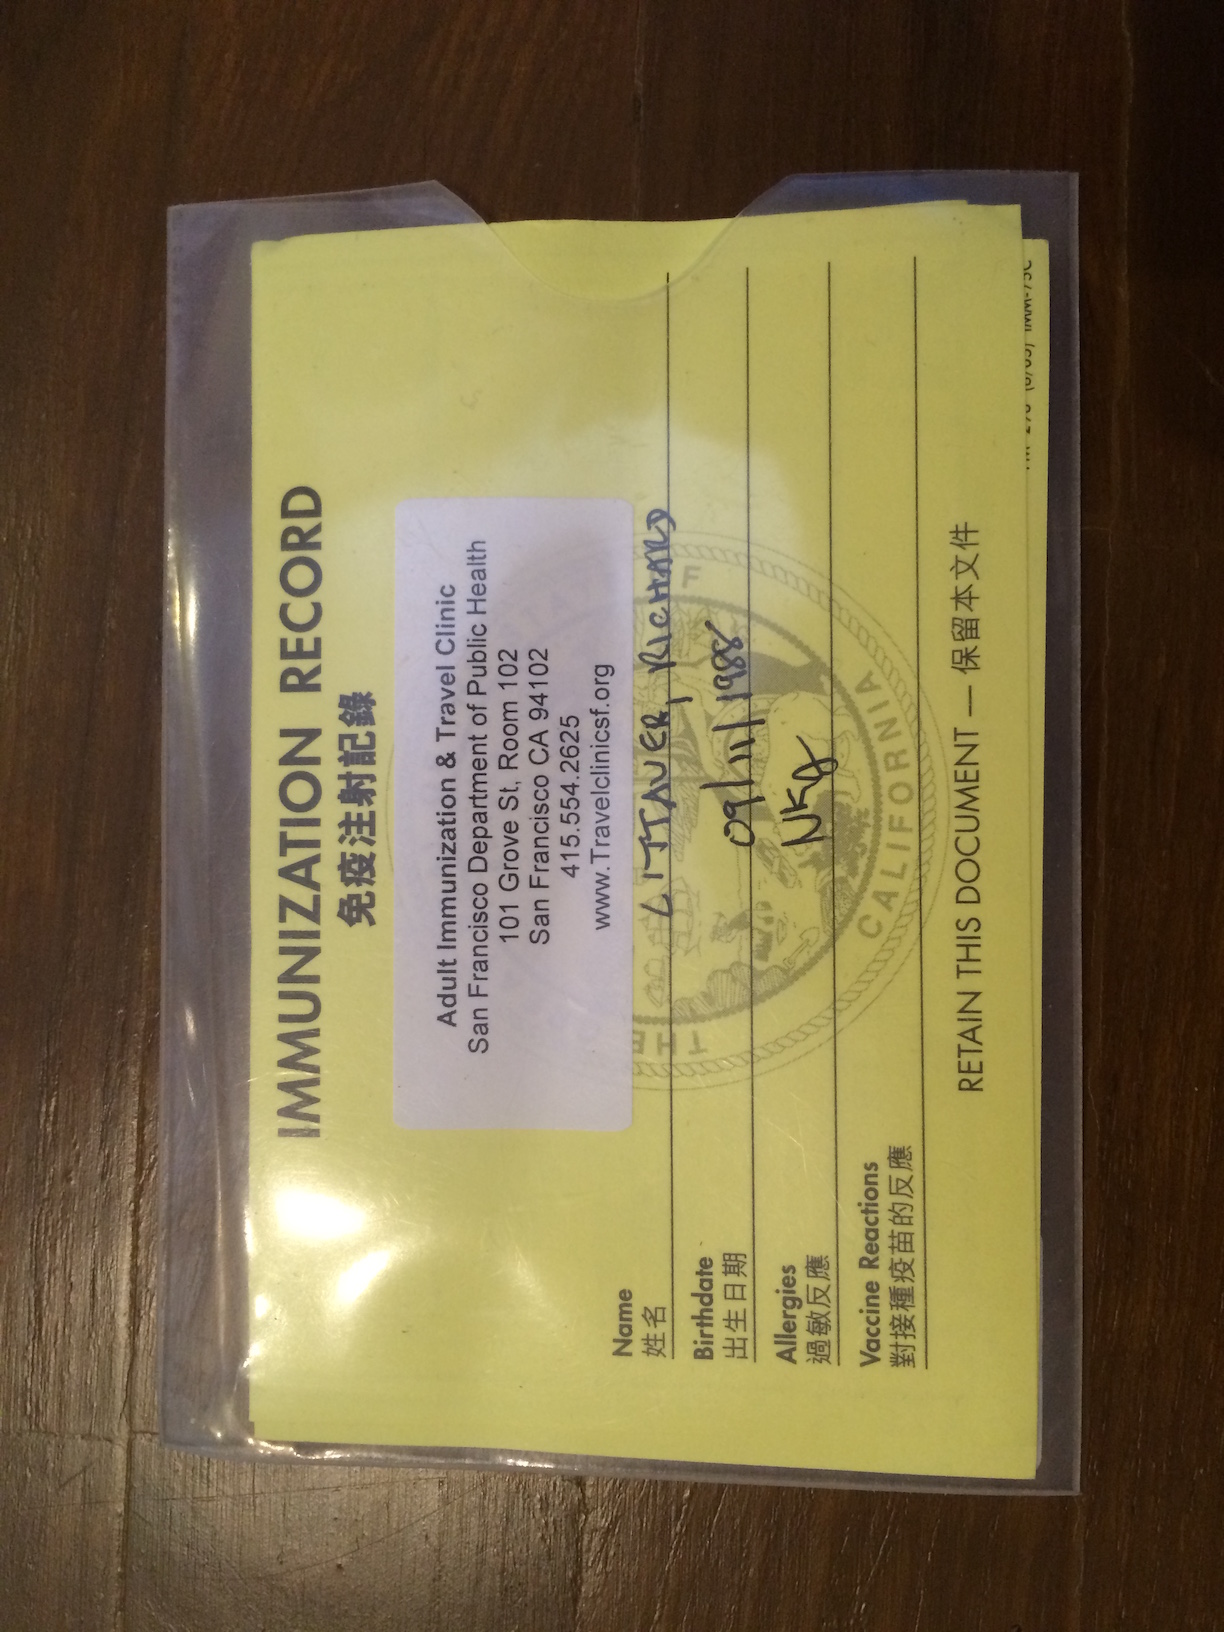 IMMUNIZATION RECORD
免疫注射記錄
Adult Immunization & Travel Clinic
San Francisco Department of Public Health
101 Grove St, Room 102
San Francisco CA 94102
415.554.2625
www.Travelclinicsf.org
Name LITTAUER, RICHARD
姓名
Birthdate 09/11/1988
出生日期
Allergies NKA
過敏反應
Vaccine Reactions
對接種疫苗的反應
THE
OF
CALIFORNIA
RETAIN THIS DOCUMENT — 保留本文件
IMM-75C